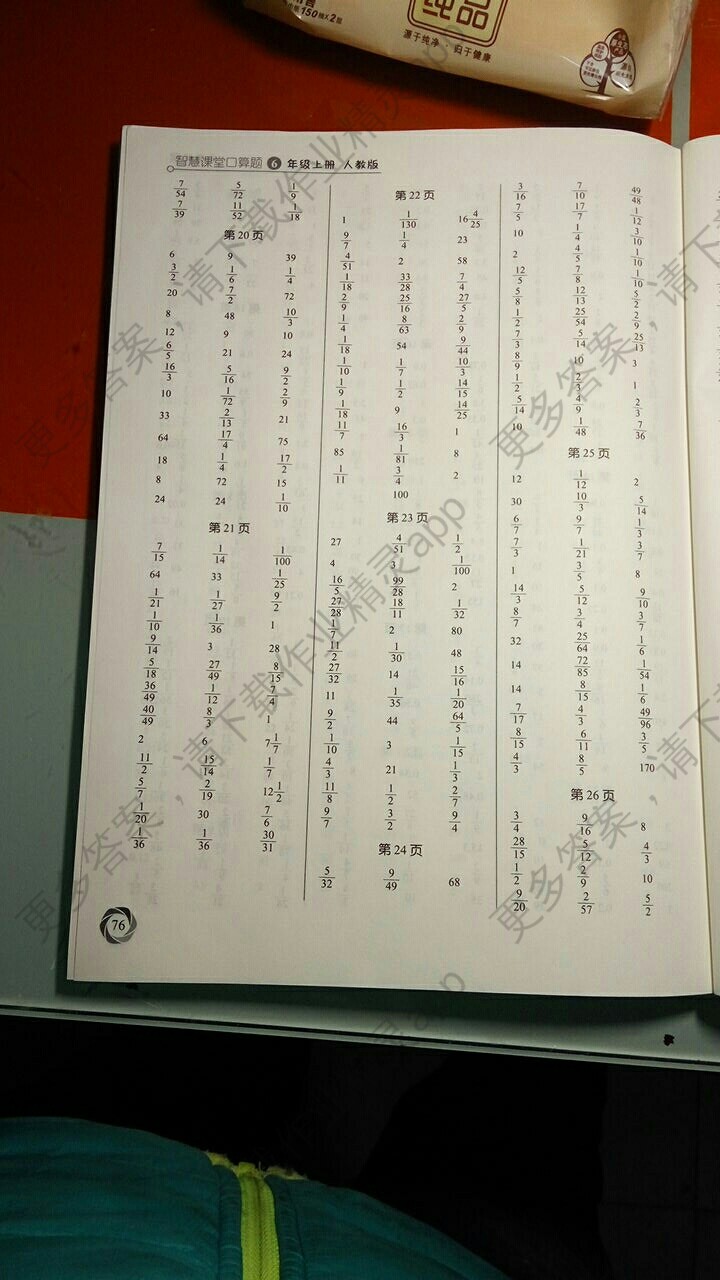 150抽×2层
纯品
源于纯净·归于健康
智慧课堂口算题 6 年级上册 人教版
7/54 5/72 1/9
7/39 11/52 1/18
第20页
6 9 39
3/2 1/6 1/4
20 7/2 72
8 48 10/3
12 9 10
6/5 21 24
16/3 5/16 9/2
10 1/72 2/9
33 2/13 21
64 17/4 75
18 1/4 17/2
8 72 15
24 24 1/10
第21页
7/15 1/14 1/100
64 33 1/25
1/21 1/27 9/2
1/10 1/36 1
9/14 3 28
5/18 27/49 8/15
36/49 1/12 7/4
40/49 8/3 1
2 6 7 1/7
11/2 15/14 1/7
5/7 2/19 12 1/2
1/20 30 7/6
1/36 1/36 30/31
第22页
1 1/130 16 4/25
9/7 1/4 23
4/51 2 58
1/18 33/28 7/4
2/9 25/16 27/5
1/4 8/63 2/9
1/18 54 9/44
1/10 1/7 10/3
1/9 1/2 14/15
1/18 9 14/25
11/7 16/3 1
85 1/81 8
1/11 3/4 2
100
第23页
27 4/51 1/2
4 3 1/100
16/5 99/28 2
27/28 18/11 1/32
1/7 2 80
11/2 1/30 48
27/32 14 15/16
11 1/35 1/20
9/2 44 64/5
1/10 3 1/15
4/3 21 1/3
11/8 1/2 2/7
9/7 3/2 9/4
第24页
5/32 9/49 68
3/16 7/10 49/48
7/5 17/7 1/12
10 1/4 3/10
2 4/5 1/10
12/5 7/8 1/10
5/8 12/13 5/2
1/2 25/54 2/9
7/3 5/14 25/13
8/9 10 3
1/2 2/3 1
5/14 4/9 2/3
10 1/48 7/36
第25页
12 1/12 2
30 10/3 5/14
6/7 9/7 1/3
7/3 1/21 3/7
1 3/5 8
14/3 5/12 9/10
8/7 3/4 3/7
32 25/64 1/6
14 72/85 1/54
14 8/15 1/6
7/17 4/3 49/96
8/15 6/11 3/5
4/3 8/5 170
第26页
3/4 9/16 8
28/15 5/12 4/3
1/2 2/9 10
9/20 2/57 5/2
76
更多答案，请下载作业精灵app
更多答案，请下载作业精灵app
更多答案，请下
更多答案，请下